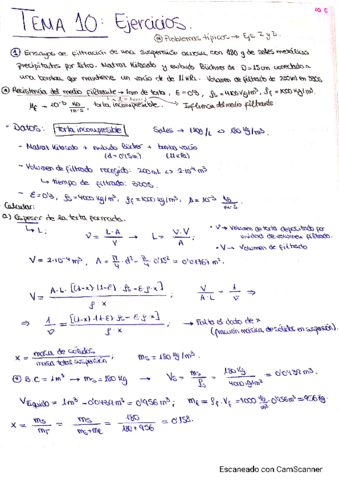 TEMA 10: Ejercicios.
10 E
Problemas típicos → Ejs 2 y 3.
① Ensayos de filtración de una suspensión acuosa con 180 g de sales metálicas
precipitadas por litro. Matraz Kitasato y embudo Büchner de D=15cm conectado a
una bomba que mantiene un vacío de de 11 KPa. Volumen de filtrado de 200ml en 320s.
Resistencia del medio filtrante → 1mm de torta, E=0'8, ρs=4000 kg/m³, ρf=1000 kg/m³.
μf = 10⁻³ kg/m·s, torta incompresible.
Influencia del medio filtrante
- Datos: torta incompresible
Sales → 180g/L ⇔ 180 kg/m³.
- Matraz Kitasato + embudo Büchner + bomba vacío
(d=0'15m) (11 KPa)
- Volumen de filtrado recogido: 200mL ⇔ 2·10⁻⁴ m³
↳ tiempo de filtrado: 320s.
- E=0'8, ρs=4000 kg/m³, ρf=1000 kg/m³, μ=10⁻³ kg/m·s
Calcular:
a) Espesor de la torta formada.
↳ L;
v = L·A/V → L = v·V/A
· v → Volumen de torta depositado por
unidad de volumen filtrado.
· V → Volumen de filtrado
V = 2·10⁻⁴ m³, A = π/4 · d² = π/4 · 0'15² = 0'01767 m².
V = A·L·[(1-x)·(1-E)·ρs - E·ρ·x] / ρ x ; V/A·L = 1/v ⇒
⇒ 1/v = [(1-x)·(1-E)·ρs - E·ρ·x] / ρ x → Falta el dato de x
(fracción másica de sólidos en suspensión).
x = masa de sólidos / masa total suspensión ; ms = 180 kg/m³.
B.C = 1m³ → ms = 180 kg → Vs = ms/ρs = 180 kg / 4000 kg/m³ = 0'045 m³.
Vlíquido = 1m³ - = 0'956 m³; mf = ρf·Vf = 1000 kg/m³ · 0'956 m³ = 956 kg.
x = ms/mT = ms/ms+mf = 180/180+956 = 0'158.
Escaneado con CamScanner